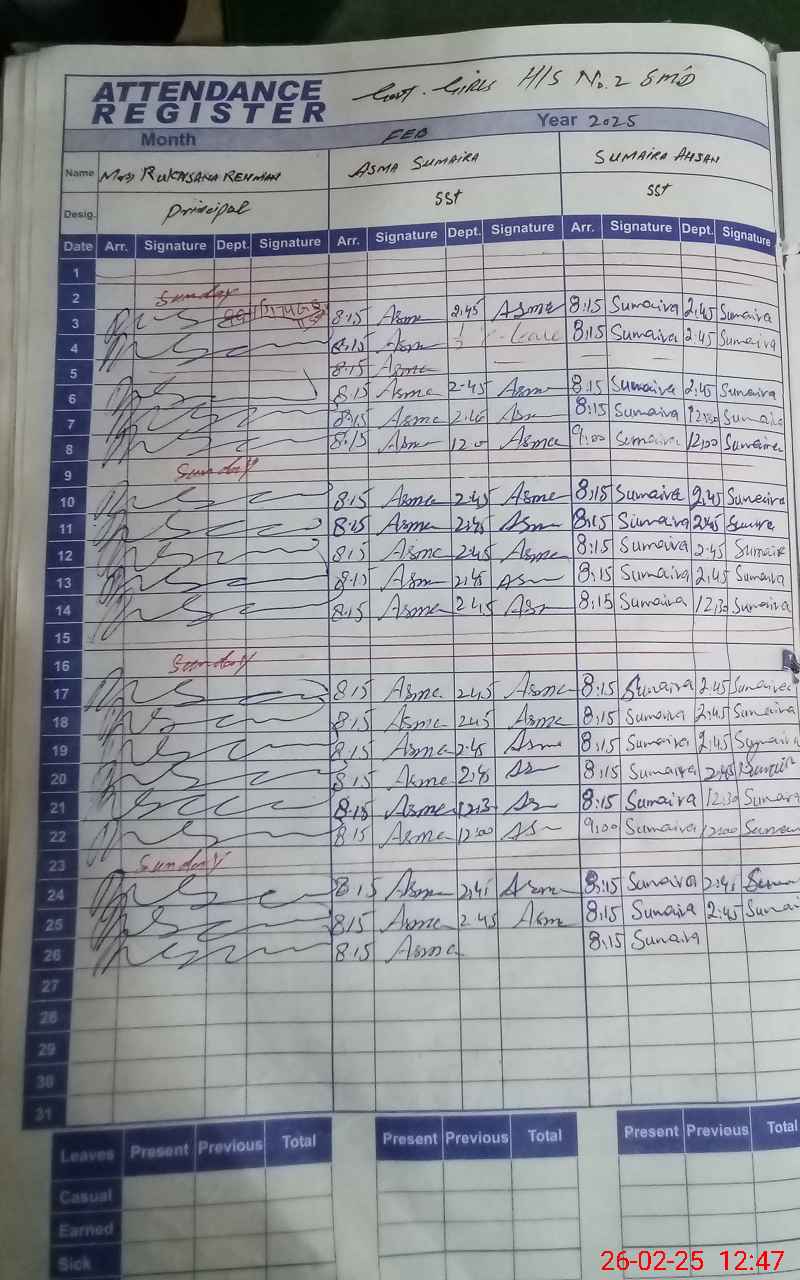 ATTENDANCE REGISTER Govt. Girls H/S No. 2
Month FEB Year 2025
Name RUKHSANA REHMAN ASMA SUMAIRA SUMAIRA AHSAN
Desig. Principal SST SST
Date Arr. Signature Dept. Signature Arr. Signature Dept. Signature Arr. Signature Dept. Signature
1
2 Sunday
3 8:15 Asma 2:45 Asma 8:15 Sumaira 2:45 Sumaira
4 8:15 Asma Leave 8:15 Sumaira 2:45 Sumaira
5 8:15 Asma
6 8:15 Asma 2:45 Asma 8:15 Sumaira 2:45 Sumaira
7 8:15 Asma 8:15 Sumaira 12:30 Sumaira
8 8:15 Asma Asma 9:00 Sumaira 12:00 Sumaira
9 Sunday
10 8:15 Asma 2:45 Asma 8:15 Sumaira 2:45 Sumaira
11 8:15 Asma 2:45 Asma 8:15 Sumaira 2:45 Sumaira
12 8:15 Asma 2:45 Asma 8:15 Sumaira 2:45 Sumaira
13 8:15 Asma 2:45 Asma 8:15 Sumaira 2:45 Sumaira
14 8:15 Asma 2:45 Asma 8:15 Sumaira 12:30 Sumaira
15
16 Sunday
17 8:15 Asma 2:45 Asma 8:15 Sumaira 2:45 Sumaira
18 8:15 Asma 2:45 Asma 8:15 Sumaira 2:45 Sumaira
19 8:15 Asma 2:45 Asma 8:15 Sumaira 2:45 Sumaira
20 8:15 Asma 2:45 8:15 Sumaira 2:45 Sumaira
21 8:15 Asma 12:30 8:15 Sumaira 12:30 Sumaira
22 8:15 Asma 12:00 9:00 Sumaira 12:00 Sumaira
23 Sunday
24 8:15 Asma 2:45 Asma 8:15 Sumaira 2:45 Sumaira
25 8:15 Asma 2:45 Asma 8:15 Sumaira 2:45 Sumaira
26 8:15 Asma 8:15 Sumaira
27
28
29
30
31
Leaves Present Previous Total Present Previous Total Present Previous Total
Casual
Earned
Sick
26-02-25 12:47